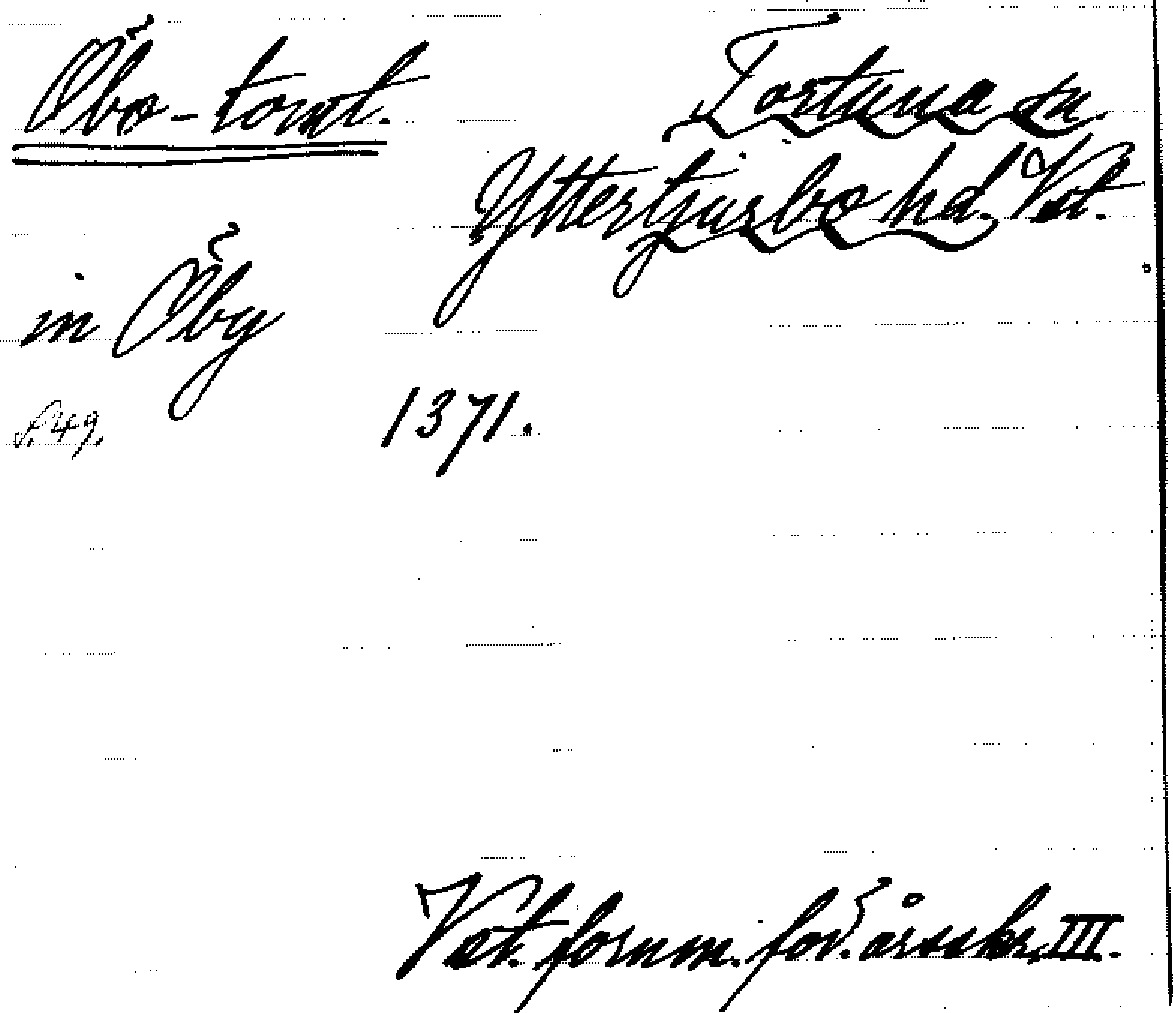 Öbo-tomt.
Tortuna sn.
Yttertjurbo hd. Vst.
in Öby
S. 49.
1371.
Vst. fornm. för. årsskr. III.